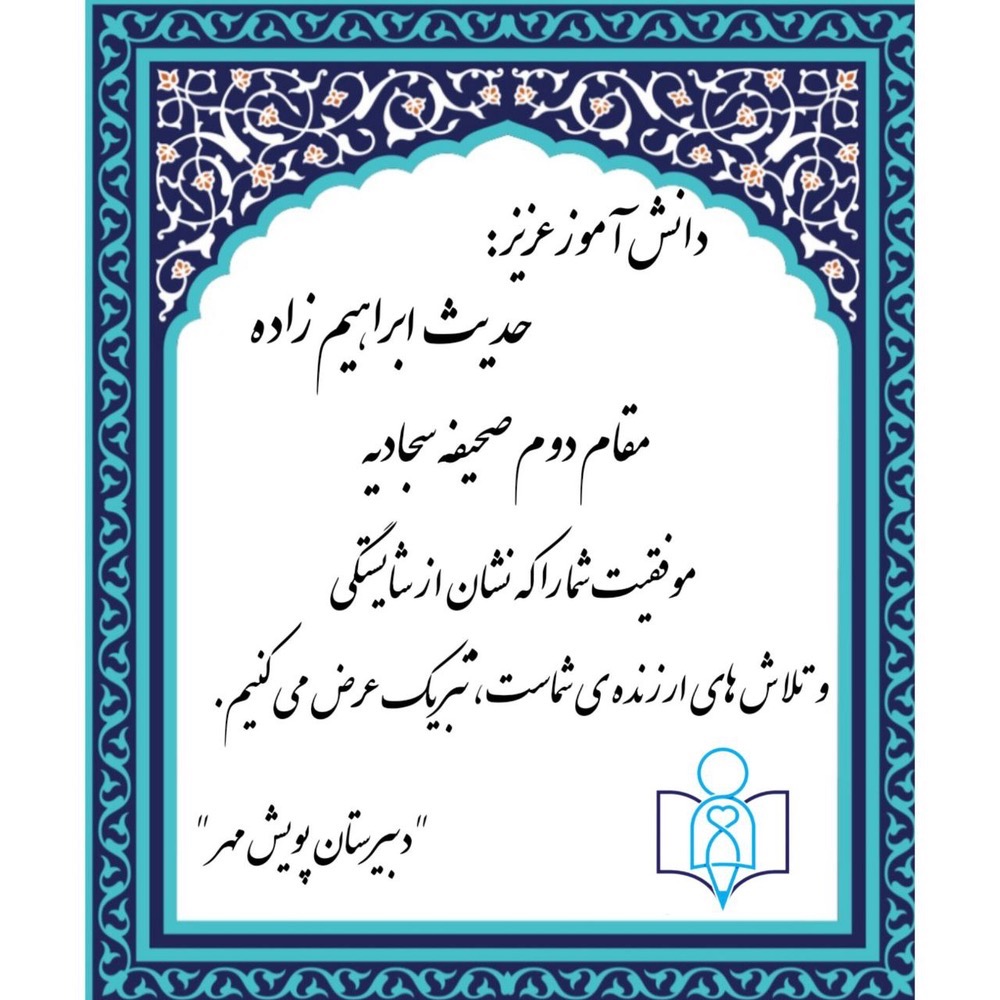 دانش آموز عزیز:
حدیث ابراهیم زاده
مقام دوم صحیفه سجادیه
موفقیت شما را که نشان از شایستگی
و تلاش های ارزنده ی شماست، تبریک عرض می کنیم.
"دبیرستان پویش مهر"